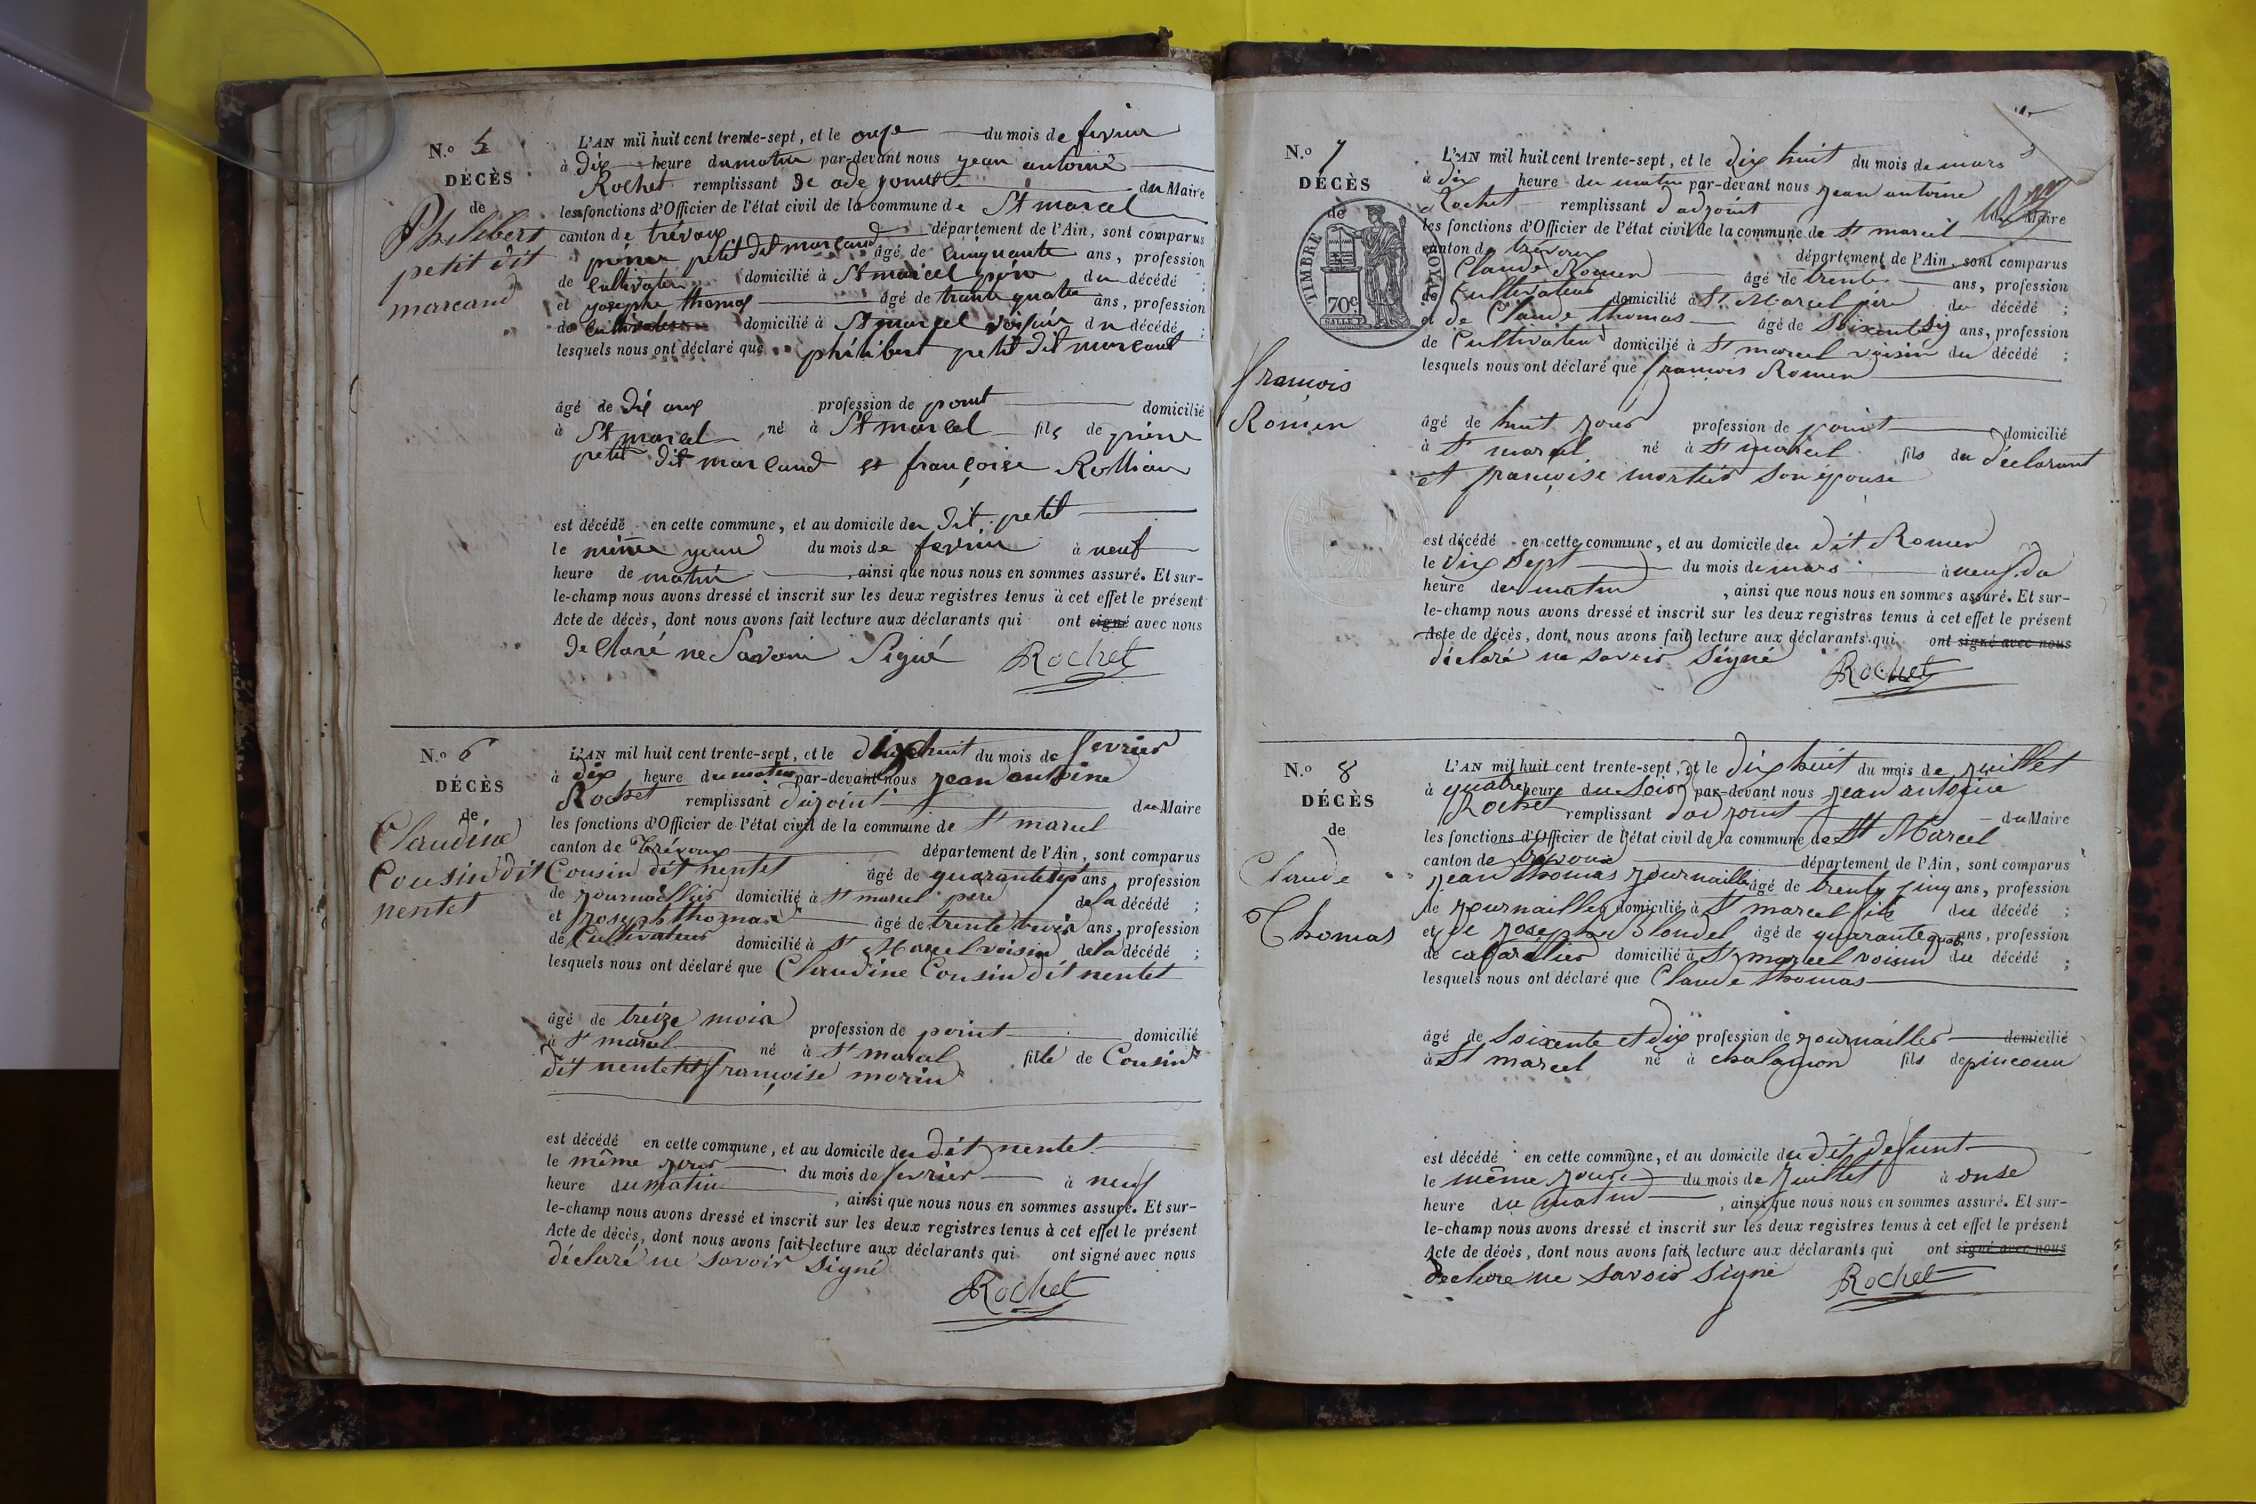 N.o 5
DÉCÈS
de
Philibert
petit dit
marcand
L'AN mil huit cent trente-sept, et le onze du mois de fevrier
à dix heure du matin par-devant nous jean antoine
Rochet remplissant de adejoint du Maire
les fonctions d'Officier de l'état civil de la commune de St marcel
canton de trévoux département de l'Ain, sont comparus
pierre petit dit marcand âgé de cinquante ans, profession
de cultivateur domicilié à St marcel père du décédé ;
et josephe thomas âgé de trante quatre ans, profession
de cultivateur domicilié à St marcel voisin du décédé ;
lesquels nous ont déclaré que philibert petit dit marcand
âgé de dix ans profession de point domicilié
à St marcel né à St marcel fils de pierre
petit dit marcand et françoise Rollian
est décédé en cette commune, et au domicile du dit petit
le même jour du mois de fevrier à neuf
heure de matin, ainsi que nous nous en sommes assuré. Et sur-
le-champ nous avons dressé et inscrit sur les deux registres tenus à cet effet le présent
Acte de décès, dont nous avons fait lecture aux déclarants qui ont signé avec nous
déclaré ne Savoir Signé Rochet
N.o 6
DÉCÈS
de
Claudine
Cousin dit
nentet
L'AN mil huit cent trente-sept, et le dixhuit du mois de fevrier
à dix heure du matin par-devant nous jean antoine
Rochet remplissant dajoint du Maire
les fonctions d'Officier de l'état civil de la commune de St marcel
canton de Trévoux département de l'Ain, sont comparus
Cousin dit nentet âgé de quarante sept ans, profession
de journallier domicilié à St marcel père de la décédé ;
et joseph thomas âgé de trente trois ans, profession
de Cultivateur domicilié à St Marcel voisin de la décédé ;
lesquels nous ont déclaré que Claudine Cousin dit nentet
âgé de treize mois profession de point domicilié
à St marcel né à St marcel fille de Cousin
dit nentet et françoise morin
est décédé en cette commune, et au domicile du dit nentet
le même jour du mois de fevrier à neuf
heure du matin, ainsi que nous nous en sommes assuré. Et sur-
le-champ nous avons dressé et inscrit sur les deux registres tenus à cet effet le présent
Acte de décès, dont nous avons fait lecture aux déclarants qui ont signé avec nous
déclaré ne savoir signé
Rochet
N.o 7
DÉCÈS
de
TIMBRE ROYAL
70c
françois
Romen
L'AN mil huit cent trente-sept, et le dix huit du mois de mars
à dix heure du matin par-devant nous jean antoine
Rochet remplissant dadjoint du Maire
les fonctions d'Officier de l'état civil de la commune de St marcel
canton de trévoux département de l'Ain, sont comparus
Claude Romen âgé de trente ans, profession
Cultivateur domicilié à St Marcel père du décédé ;
et de Claude thomas âgé de Soixante dix ans, profession
de Cultivateur domicilié à St marcel voisin du décédé ;
lesquels nous ont déclaré que françois Romen
âgé de huit jour profession de point domicilié
à St marcel né à St marcel fils du déclarant
et françoise mortier son épouse
est décédé en cette commune, et au domicile du dit Romen
le dix Sept du mois de mars à neuf du
heure du matin, ainsi que nous nous en sommes assuré. Et sur-
le-champ nous avons dressé et inscrit sur les deux registres tenus à cet effet le présent
Acte de décès, dont nous avons fait lecture aux déclarants qui ont signé avec nous
déclaré ne savoir signé Rochet
N.o 8
DÉCÈS
de
Claude
Thomas
L'AN mil huit cent trente-sept, et le dix huit du mois de juillet
à quatre heure du Soir par-devant nous jean antoine
Rochet remplissant dadjoint du Maire
les fonctions d'Officier de l'état civil de la commune de St Marcel
canton de trévoux département de l'Ain, sont comparus
jean thomas journaillier âgé de trente cinq ans, profession
de journaillier domicilié à St marcel fils du décédé ;
et de joseph Blondel âgé de quarante quatre ans, profession
de cabaretier domicilié à St marcel voisin du décédé ;
lesquels nous ont déclaré que Claude thomas
âgé de Soixente et dix profession de journaillier domicilié
à St marcel né à chalamon fils de
est décédé en cette commune, et au domicile du dit defunt
le même jour du mois de juillet à onse
heure du matin, ainsi que nous nous en sommes assuré. Et sur-
le-champ nous avons dressé et inscrit sur les deux registres tenus à cet effet le présent
Acte de décès, dont nous avons fait lecture aux déclarants qui ont signé avec nous
declare ne savoir signé Rochet